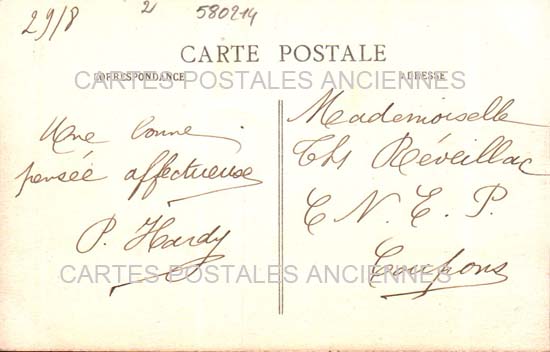 29/8
2
580214
CARTE POSTALE
CORRESPONDANCE
ADRESSE
CARTES POSTALES ANCIENNES
Une bonne
pensée affectueuse
P. Hardy
Mademoiselle
Ths Réveillac
C. N. E. P.
Coupons
CARTES POSTALES ANCIENNES